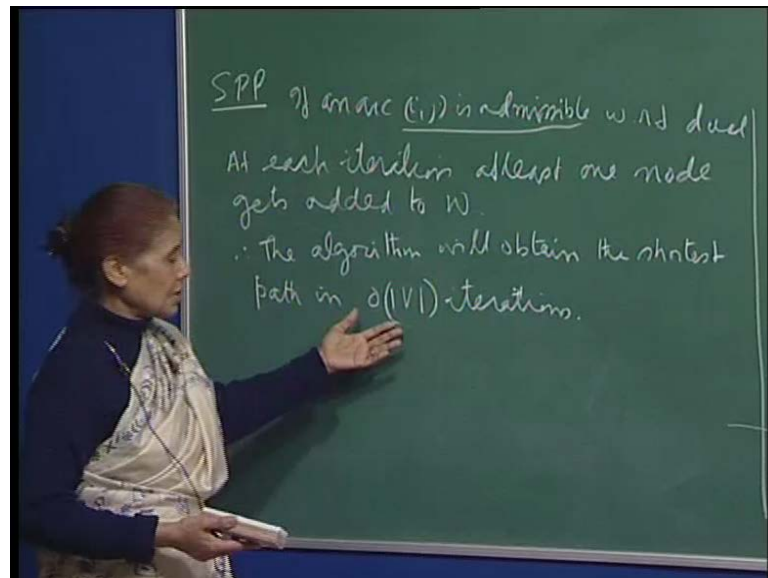 SPP If an arc (i,j) is admissible w.r.t dual
At each iteration atleast one node
gets added to W.
∴ The algorithm will obtain the shortest
path in O(|V|) iterations.